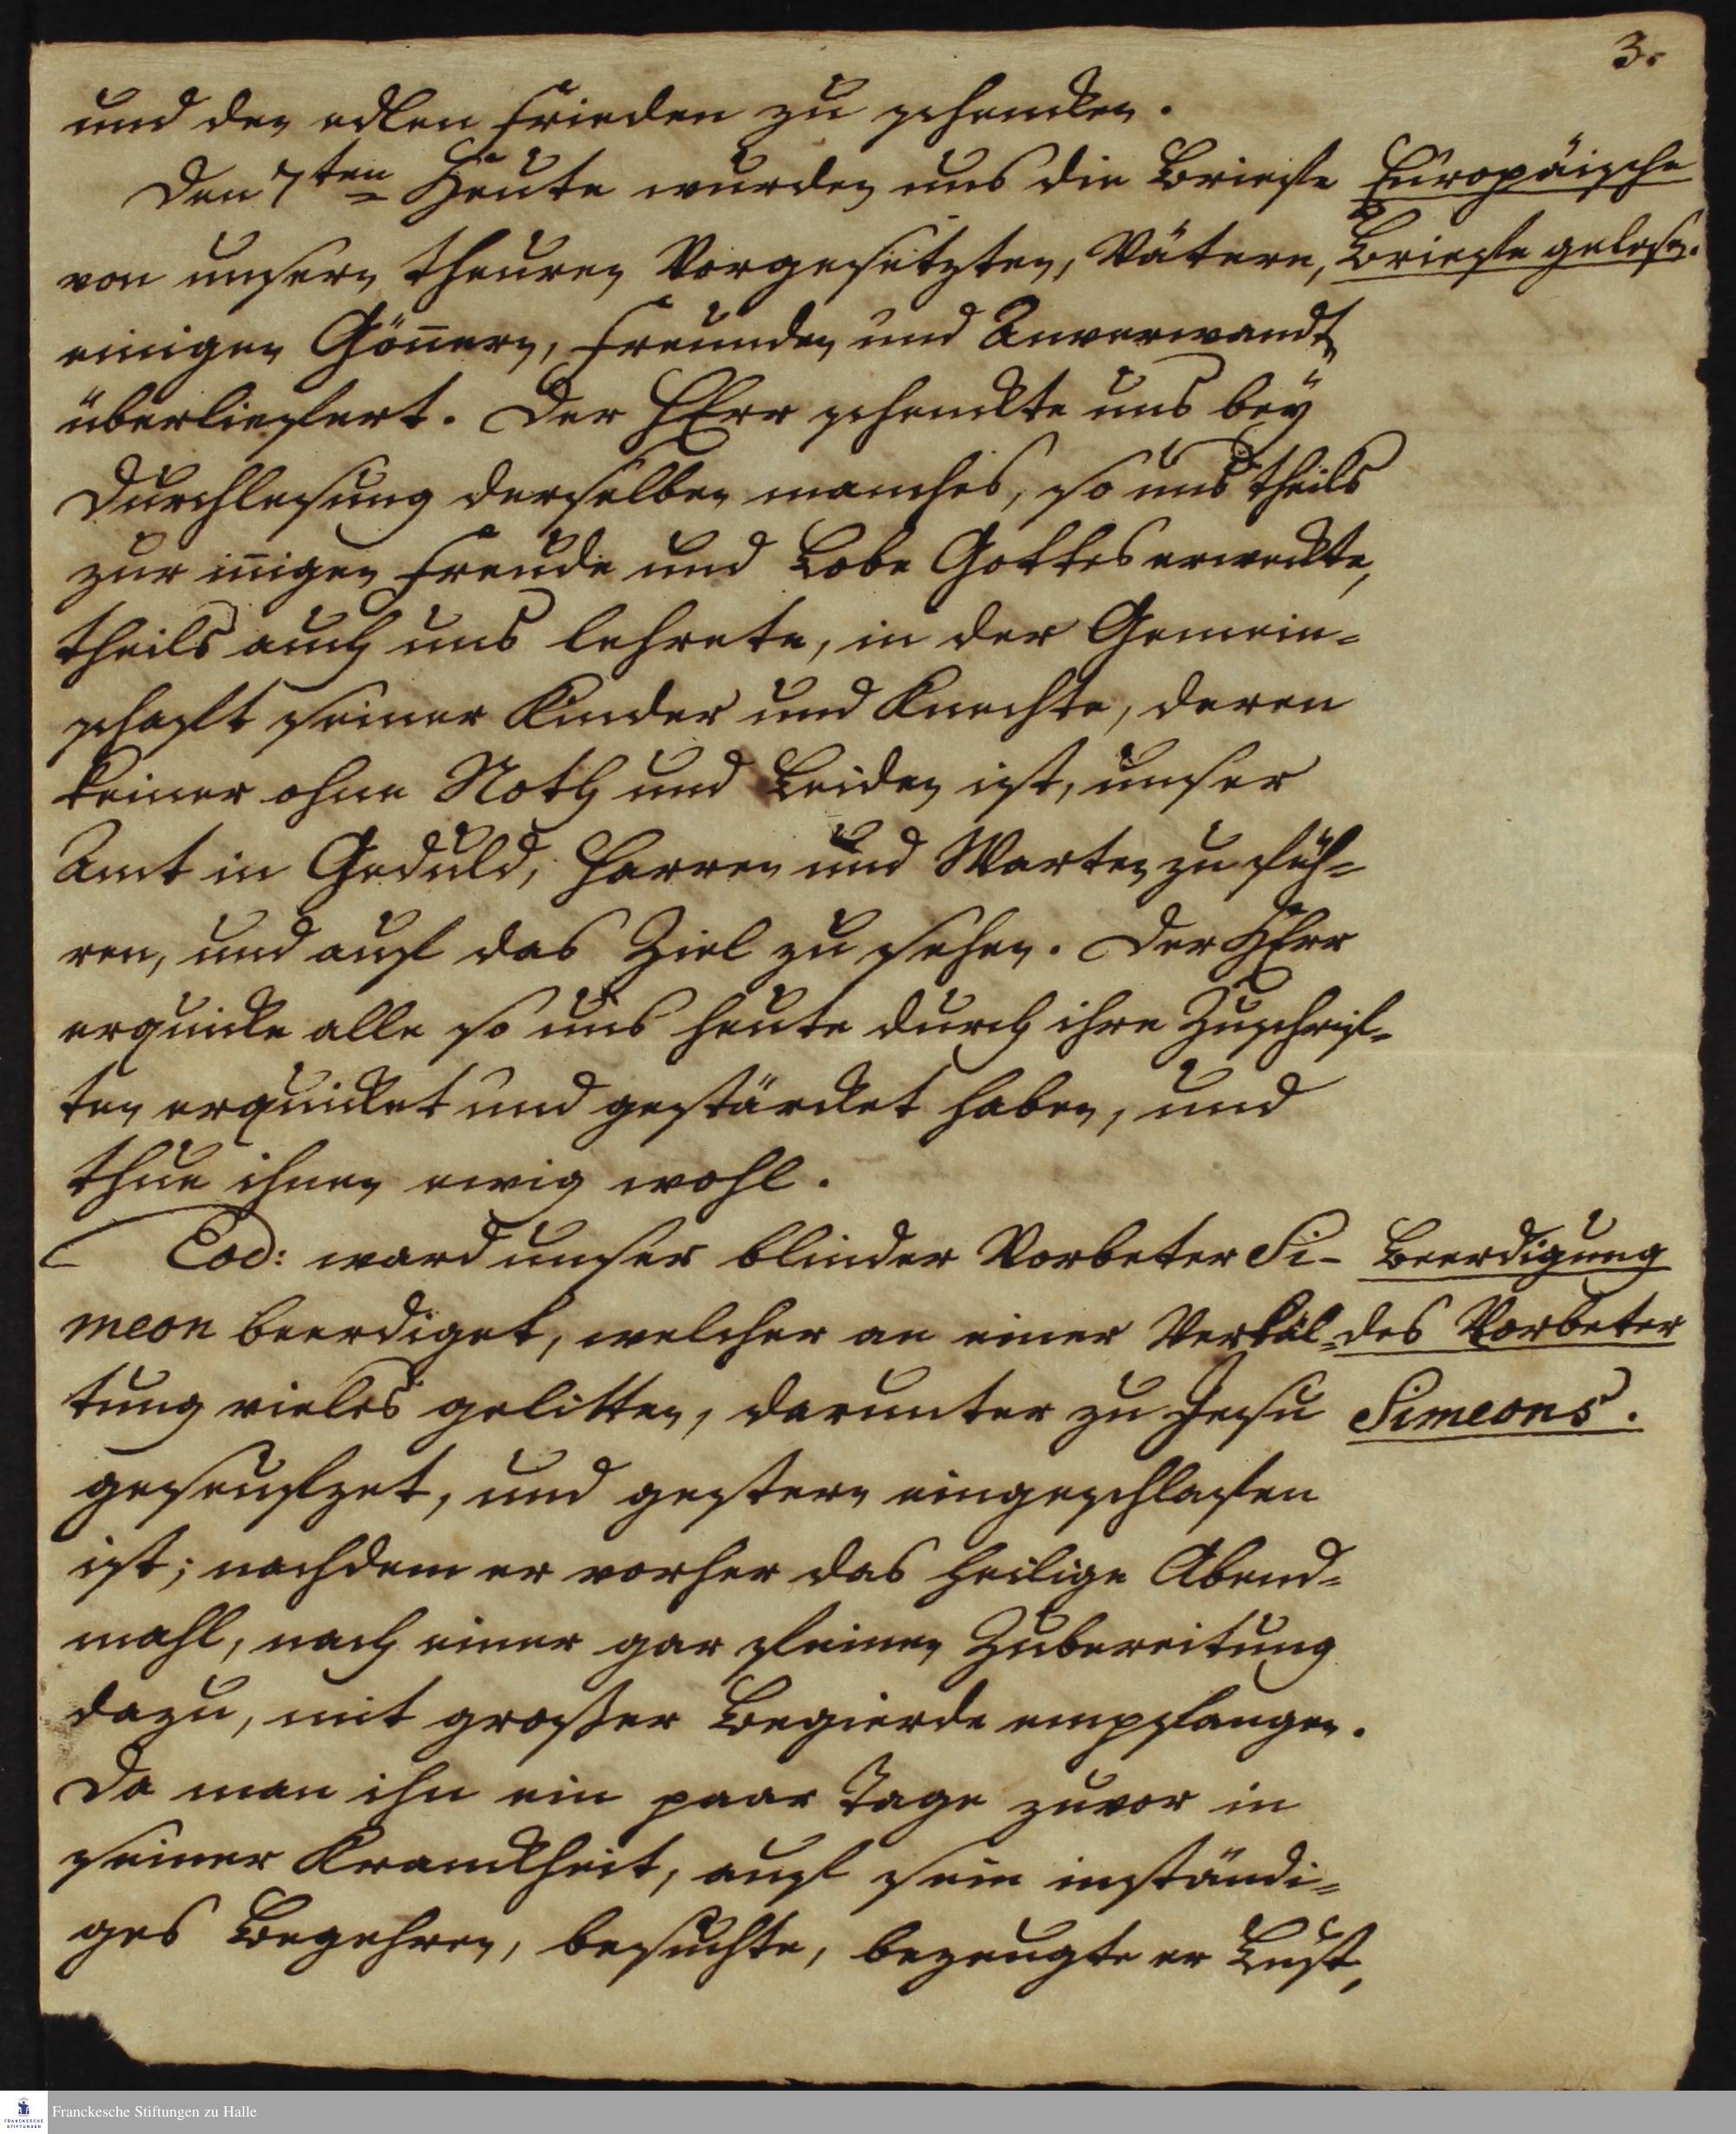 3.
und den edlen Frieden zu schencken.
Den 7ten Heute wurden uns die Briefe
Europäische
von unsern theuren Vorgesetzten, Vätern,
Briefe gelesen.
einigen Göñern, Freunden und Anverwandten
überliefert. Der HErr schenckte uns bey
Durchlesung derselben manches, so uns theils
zur iñigen Freude und Lobe Gottes erweckte,
theils auch uns lehrete, in der Gemein-
schaft seiner Kinder und Knechte, deren
keiner ohne Noth und Leiden ist, unser
Amt in Geduld, Harren und Warten zu füh-
ren, und auf das Ziel zu sehen. Der HErr
erquicke alle so uns heute durch ihre Zuschrif-
ten erquicket und gestärcket haben, und
thue ihnen ewig wohl.
Eod: ward unser blinder Vorbeter Si-
Beerdigung
meon beerdiget, welcher an einer Verkäl-
des Vorbeter
tung vieles gelitten, darunter zu Jesu
Simeons.
geseufzet, und gestern eingeschlafen
ist; nachdem er vorher das heilige Abend-
mahl, nach einer gar feinen Zubereitung
dazu, mit großer Begierde empfangen.
Da man ihn ein paar Tage zuvor in
seiner Kranckheit, auf sein inständi-
ges Begehren, besuchte, bezeugte er Lust,
Franckesche Stiftungen zu Halle
FRANCKESCHE
STIFTUNGEN